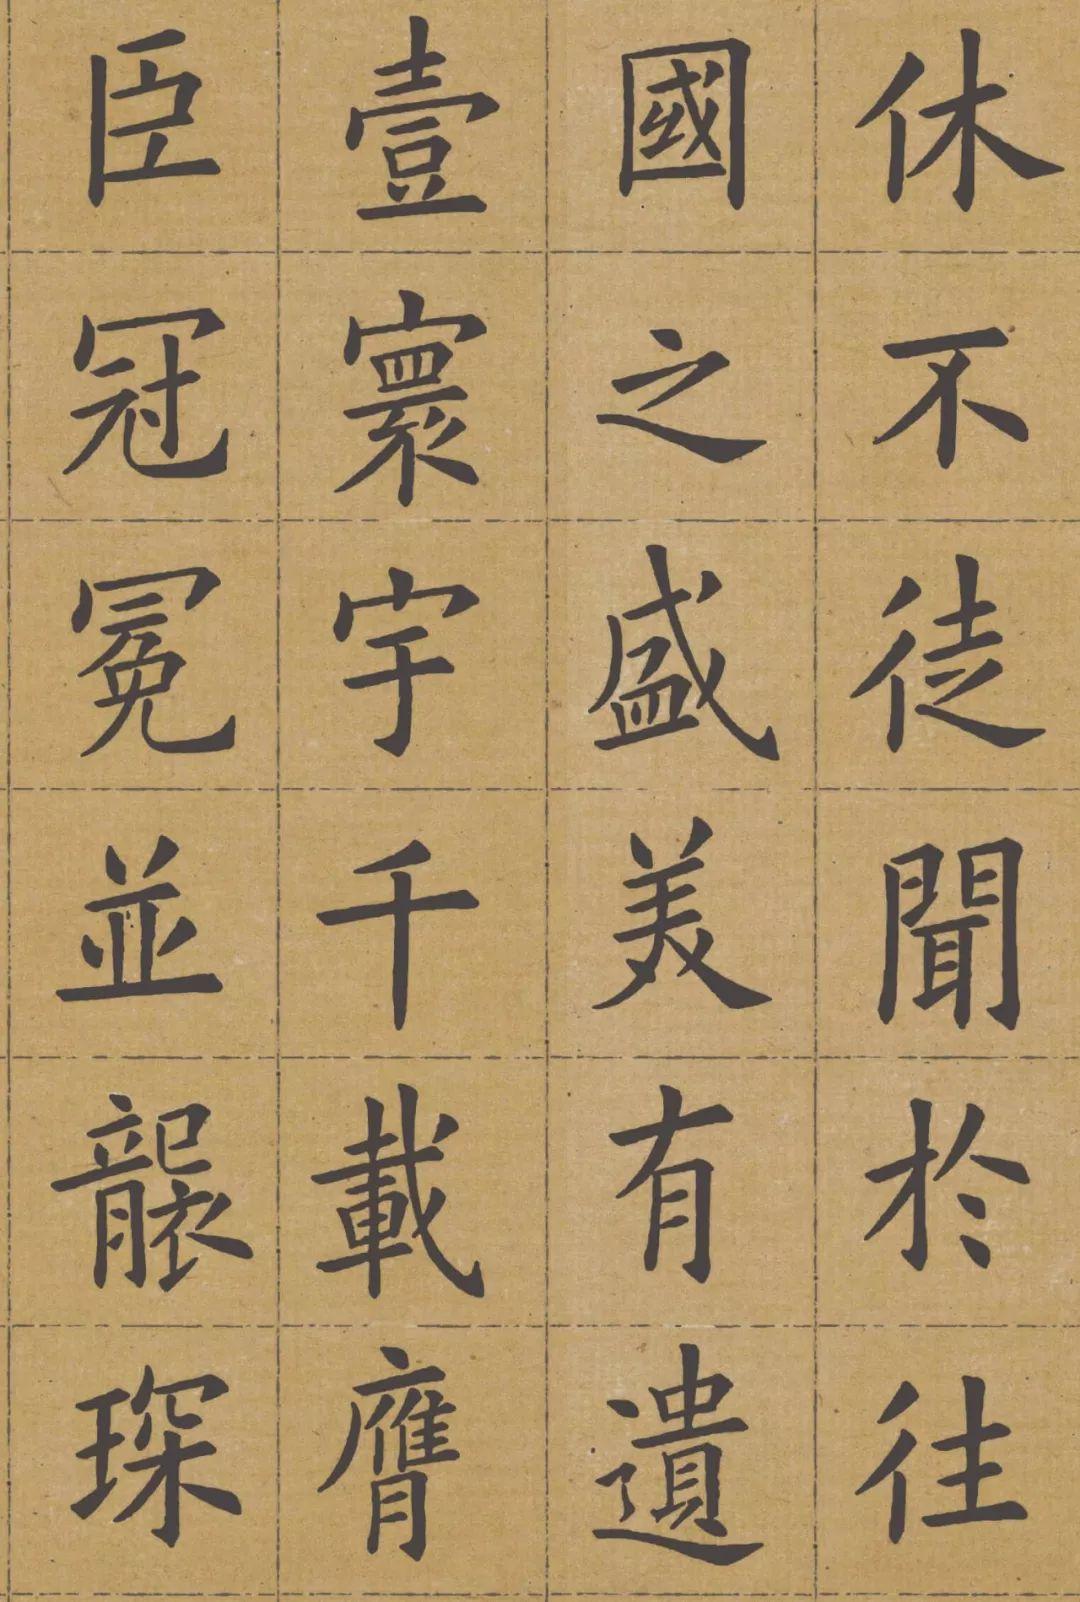 休不徒聞於往
國之盛美有遺
壹寰宇千載膺
臣冠冕並襲琛